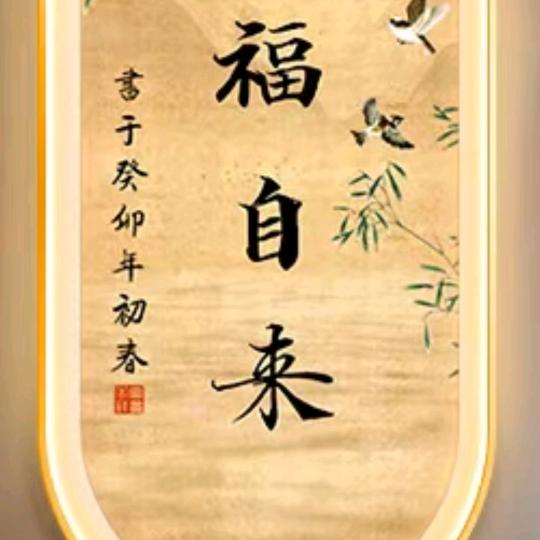 福自来
書于癸卯年初春